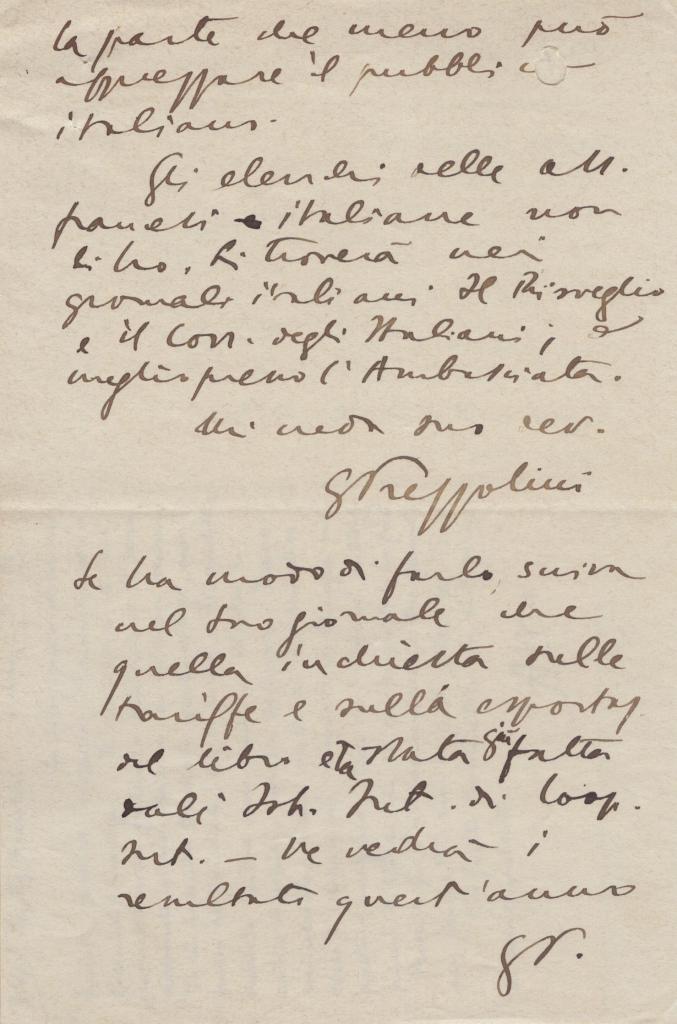 la parte che meno può
apprezzare il pubblico
italiano.
Gli elenchi delle ass.
francesi e italiane non
li ho. Li troverà nei
giornali italiani Il Risveglio
e il Corr. degli Italiani; o
meglio presso l'Ambasciata.
Mi creda suo dev.
GPrezzolini
Se ha modo di farlo, scriva
nel suo giornale che
quella inchiesta sulle
tariffe e sulla esportaz
del libro è stata già fatta
dall' Ist. Int. di Coop.
Int. — Ne vedrà i
resultati quest'anno
GP.